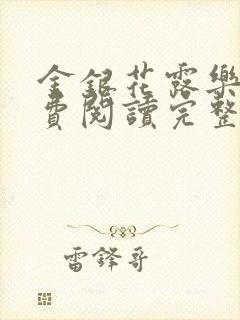 金銀花露樂
費閱讀完整
雷鋒哥